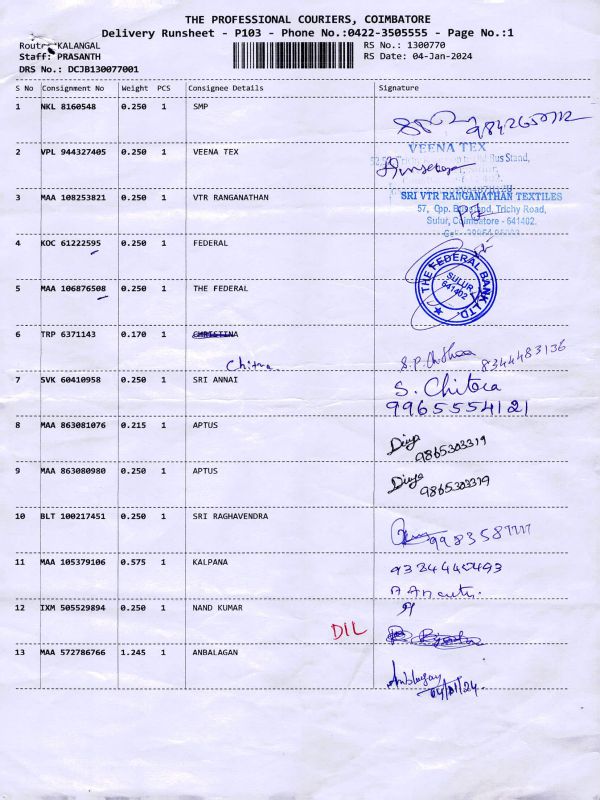 THE PROFESSIONAL COURIERS, COIMBATORE
Delivery Runsheet - P103 - Phone No.:0422-3505555 - Page No.:1
Route: KALANGAL RS No.: 1300770
Staff: PRASANTH RS Date: 04-Jan-2024
DRS No.: DCJB130077001
S No Consignment No Weight PCS Consignee Details Signature
1 NKL 8160548 0.250 1 SMP
2 VPL 944327405 0.250 1 VEENA TEX
VEENA TEX
Bus Stand,
3 MAA 108253821 0.250 1 VTR RANGANATHAN
SRI VTR RANGANATHAN TEXTILES
57, Opp. Bus Stand, Trichy Road,
Sulur, Coimbatore - 641402.
4 KOC 61222595 0.250 1 FEDERAL
THE FEDERAL BANK LTD.
SULUR
641402
5 MAA 106876508 0.250 1 THE FEDERAL
6 TRP 6371143 0.170 1 CHRISTINA
Chitra
8344483136
7 SVK 60410958 0.250 1 SRI ANNAI
S. Chitra
9965554121
8 MAA 863081076 0.215 1 APTUS
Divya
9865303319
9 MAA 863080980 0.250 1 APTUS
Divya
9865303319
10 BLT 100217451 0.250 1 SRI RAGHAVENDRA
11 MAA 105379106 0.575 1 KALPANA
12 IXM 505529894 0.250 1 NAND KUMAR
DIL
13 MAA 572786766 1.245 1 ANBALAGAN
Anblagan
04/01/24.